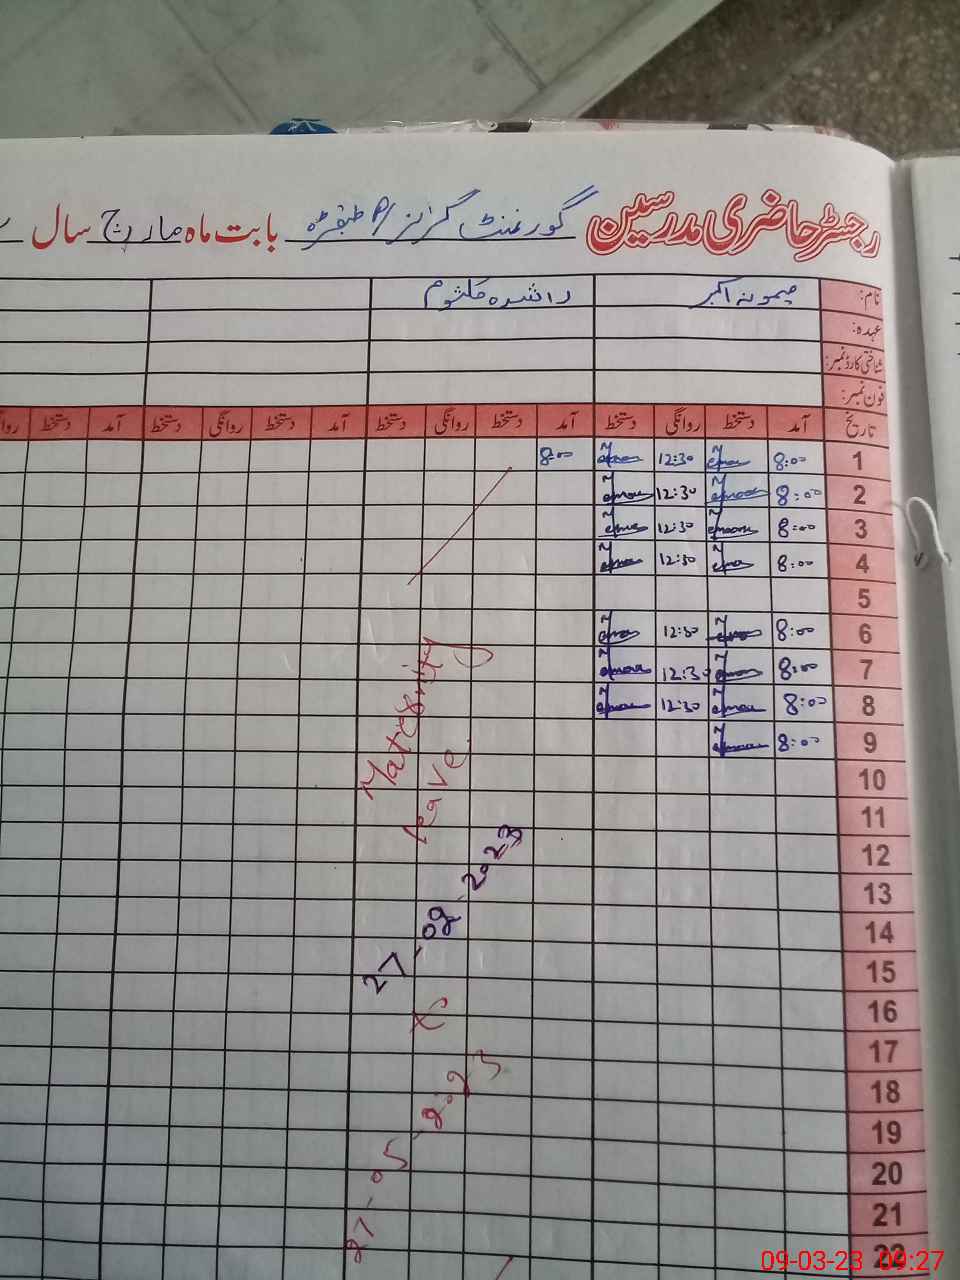 رجسٹر حاضری مدرسین گورنمنٹ گرلز بابت ماہ مارچ سال
نام: میمونہ اکبر راشدہ کلثوم
عہدہ:
شناختی کارڈ نمبر:
فون نمبر:
تاریخ آمد دستخط روانگی دستخط آمد دستخط روانگی دستخط آمد دستخط روانگی دستخط آمد دستخط
1 8:00 12:30 8:00
2 8:00 12:30
3 8:00 12:30
4 8:00 12:30
5
6 8:00 12:30
7 8:00 12:30
8 8:00 12:30
9 8:00
10
11
12
13
14
15
16
17
18
19
20
21
22
Maternity
leave
27-02-2023
to
27-05-2023
09-03-23 09:27